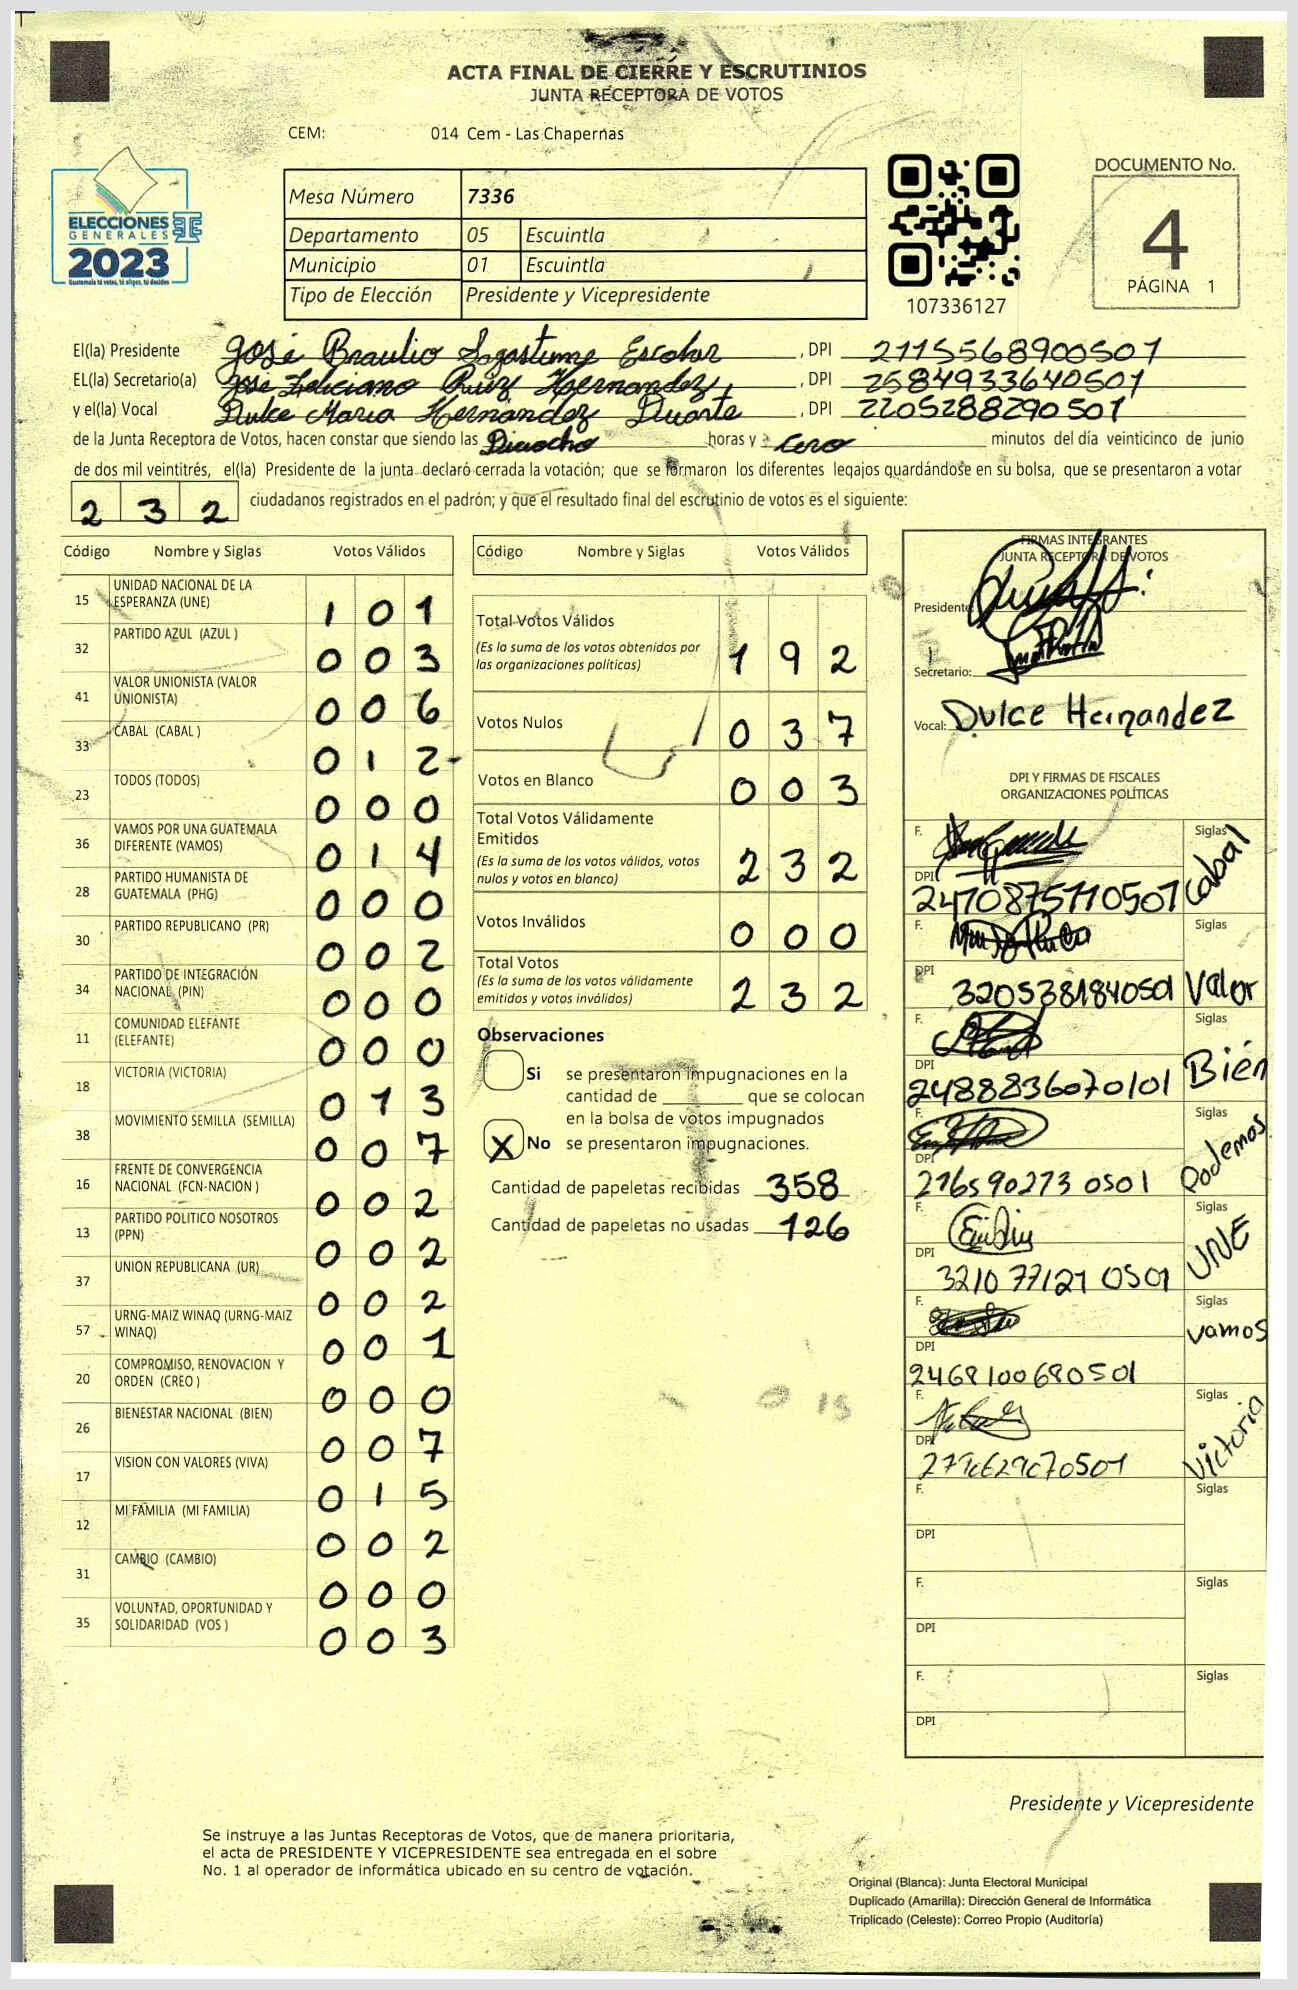 ACTA FINAL DE CIERRE Y ESCRUTINIOS
JUNTA RECEPTORA DE VOTOS
CEM: 014 Cem - Las Chapernas
ELECCIONES
GENERALES
2023
Guatemala tú votas, tú eliges, tú decides
Mesa Número 7336
Departamento 05 Escuintla
Municipio 01 Escuintla
Tipo de Elección Presidente y Vicepresidente
107336127
DOCUMENTO No.
4
PÁGINA 1
El(la) Presidente José Braulio Sagastume Escobar , DPI 2115568900501
EL(la) Secretario(a) José Feliciano Ruiz Hernandez, , DPI 2584933640501
y el(la) Vocal Dulce Maria Hernández Duarte , DPI 2205288290501
de la Junta Receptora de Votos, hacen constar que siendo las Dieciocho horas y cero minutos del día veinticinco de junio
de dos mil veintitrés, el(la) Presidente de la junta declaró cerrada la votación; que se formaron los diferentes legajos guardándose en su bolsa, que se presentaron a votar
2 3 2 ciudadanos registrados en el padrón; y que el resultado final del escrutinio de votos es el siguiente:
Código Nombre y Siglas Votos Válidos
15 UNIDAD NACIONAL DE LA ESPERANZA (UNE) 1 0 1
32 PARTIDO AZUL (AZUL ) 0 0 3
41 VALOR UNIONISTA (VALOR UNIONISTA) 0 0 6
33 CABAL (CABAL ) 0 1 2
23 TODOS (TODOS) 0 0 0
36 VAMOS POR UNA GUATEMALA DIFERENTE (VAMOS) 0 1 4
28 PARTIDO HUMANISTA DE GUATEMALA (PHG) 0 0 0
30 PARTIDO REPUBLICANO (PR) 0 0 2
34 PARTIDO DE INTEGRACIÓN NACIONAL (PIN) 0 0 0
11 COMUNIDAD ELEFANTE (ELEFANTE) 0 0 0
18 VICTORIA (VICTORIA) 0 1 3
38 MOVIMIENTO SEMILLA (SEMILLA) 0 0 7
16 FRENTE DE CONVERGENCIA NACIONAL (FCN-NACION ) 0 0 2
13 PARTIDO POLITICO NOSOTROS (PPN) 0 0 2
37 UNION REPUBLICANA (UR) 0 0 2
57 URNG-MAIZ WINAQ (URNG-MAIZ WINAQ) 0 0 1
20 COMPROMISO, RENOVACION Y ORDEN (CREO ) 0 0 0
26 BIENESTAR NACIONAL (BIEN) 0 0 7
17 VISION CON VALORES (VIVA) 0 1 5
12 MI FAMILIA (MI FAMILIA) 0 0 2
31 CAMBIO (CAMBIO) 0 0 0
35 VOLUNTAD, OPORTUNIDAD Y SOLIDARIDAD (VOS ) 0 0 3
Código Nombre y Siglas Votos Válidos
Total Votos Válidos
(Es la suma de los votos obtenidos por las organizaciones políticas) 1 9 2
Votos Nulos 0 3 7
Votos en Blanco 0 0 3
Total Votos Válidamente Emitidos
(Es la suma de los votos válidos, votos nulos y votos en blanco) 2 3 2
Votos Inválidos 0 0 0
Total Votos
(Es la suma de los votos válidamente emitidos y votos inválidos) 2 3 2
Observaciones
Si se presentaron impugnaciones en la
cantidad de ________ que se colocan
en la bolsa de votos impugnados
X No se presentaron impugnaciones.
Cantidad de papeletas recibidas 358
Cantidad de papeletas no usadas 126
FIRMAS INTEGRANTES
JUNTA RECEPTORA DE VOTOS
Presidente:
Secretario:
Vocal: Dulce Hernandez
DPI Y FIRMAS DE FISCALES
ORGANIZACIONES POLÍTICAS
F. Siglas Cabal
DPI 2470875110507
F. Siglas Valor
DPI 3205381840501
F. Siglas Bién
DPI 2488836070101
F. Siglas Podemos
DPI 2165902730501
F. Siglas UNE
DPI 3210771210501
F. Siglas vamos
DPI 2468100680501
F. Siglas Victoria
DPI
F. Siglas
DPI
F. Siglas
DPI
F. Siglas
DPI
Presidente y Vicepresidente
Se instruye a las Juntas Receptoras de Votos, que de manera prioritaria,
el acta de PRESIDENTE Y VICEPRESIDENTE sea entregada en el sobre
No. 1 al operador de informática ubicado en su centro de votación.
Original (Blanca): Junta Electoral Municipal
Duplicado (Amarilla): Dirección General de Informática
Triplicado (Celeste): Correo Propio (Auditoría)